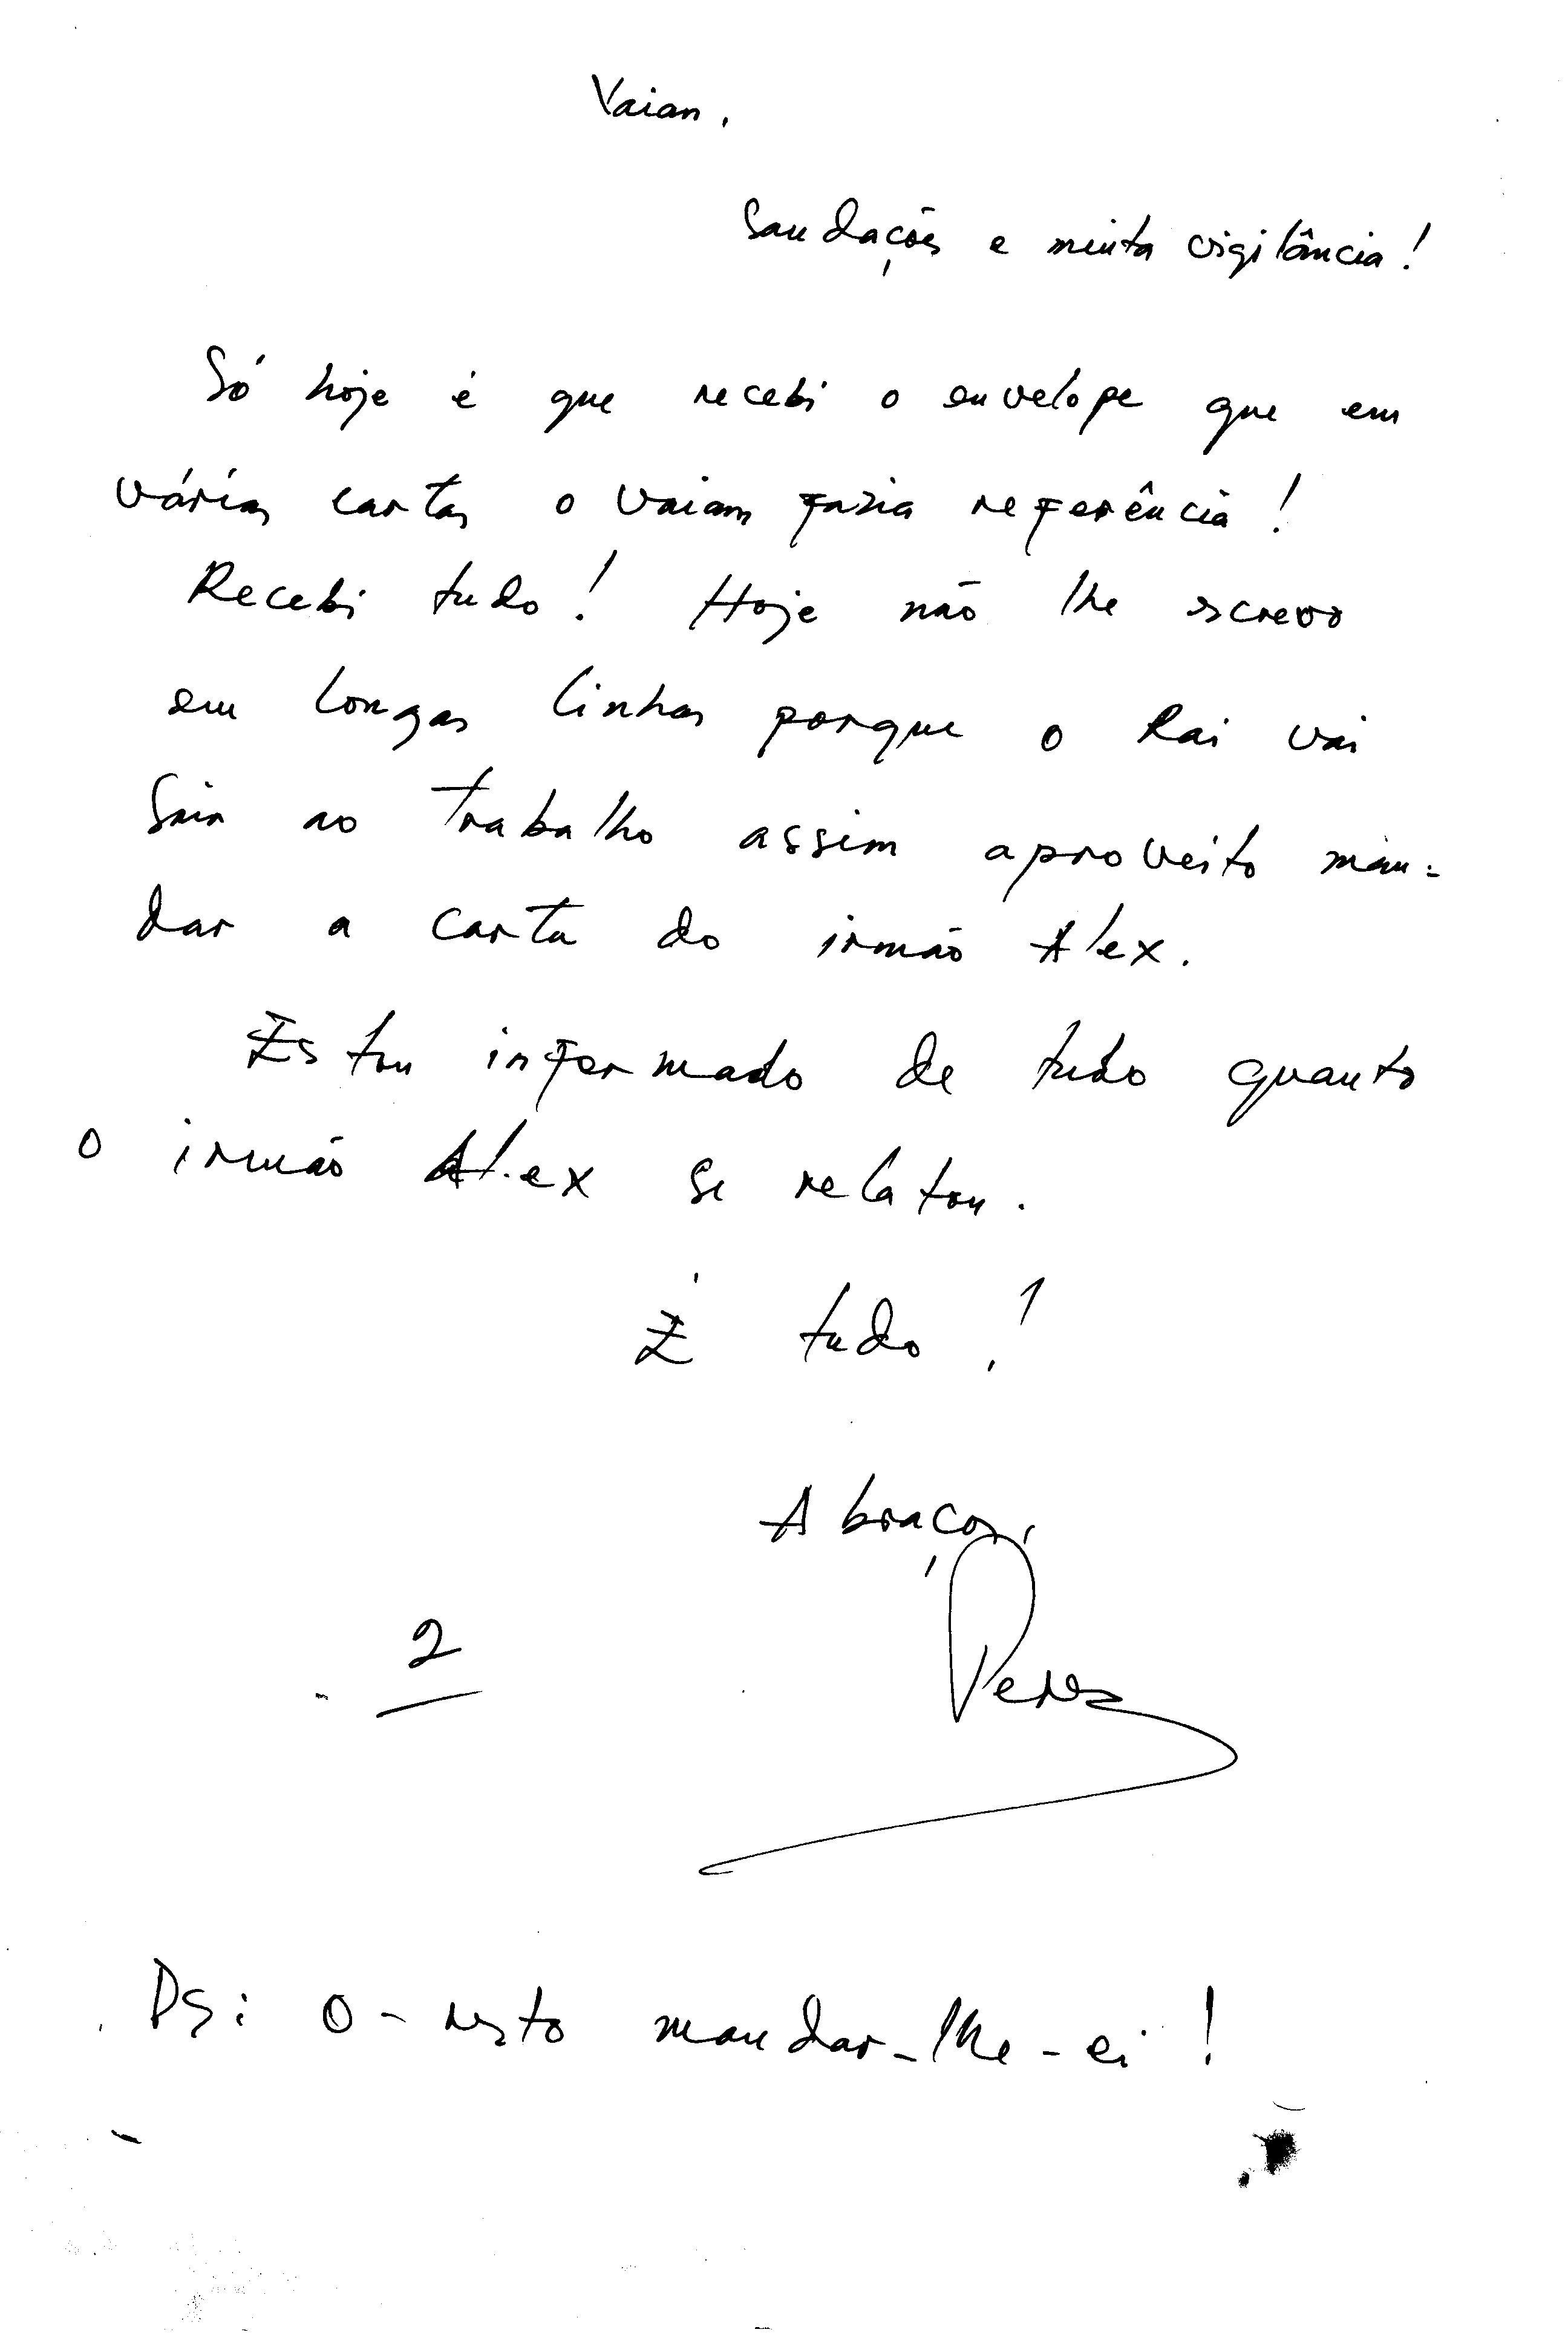 Vaian,
Saudações e muita vigilância!
Só hoje é que recebi o envelope que em
várias cartas o Vaiam fazia referência!
Recebi tudo! Hoje não lhe escrevo
em longas linhas porque o Rai vai
Sair ao trabalho assim aproveito man-
dar a carta do irmão Alex.
Estou informado de tudo quanto
o irmão Alex se relatou.
É tudo!
Abraços,
2
Perez
PS: O-resto mandar-lhe-ei!